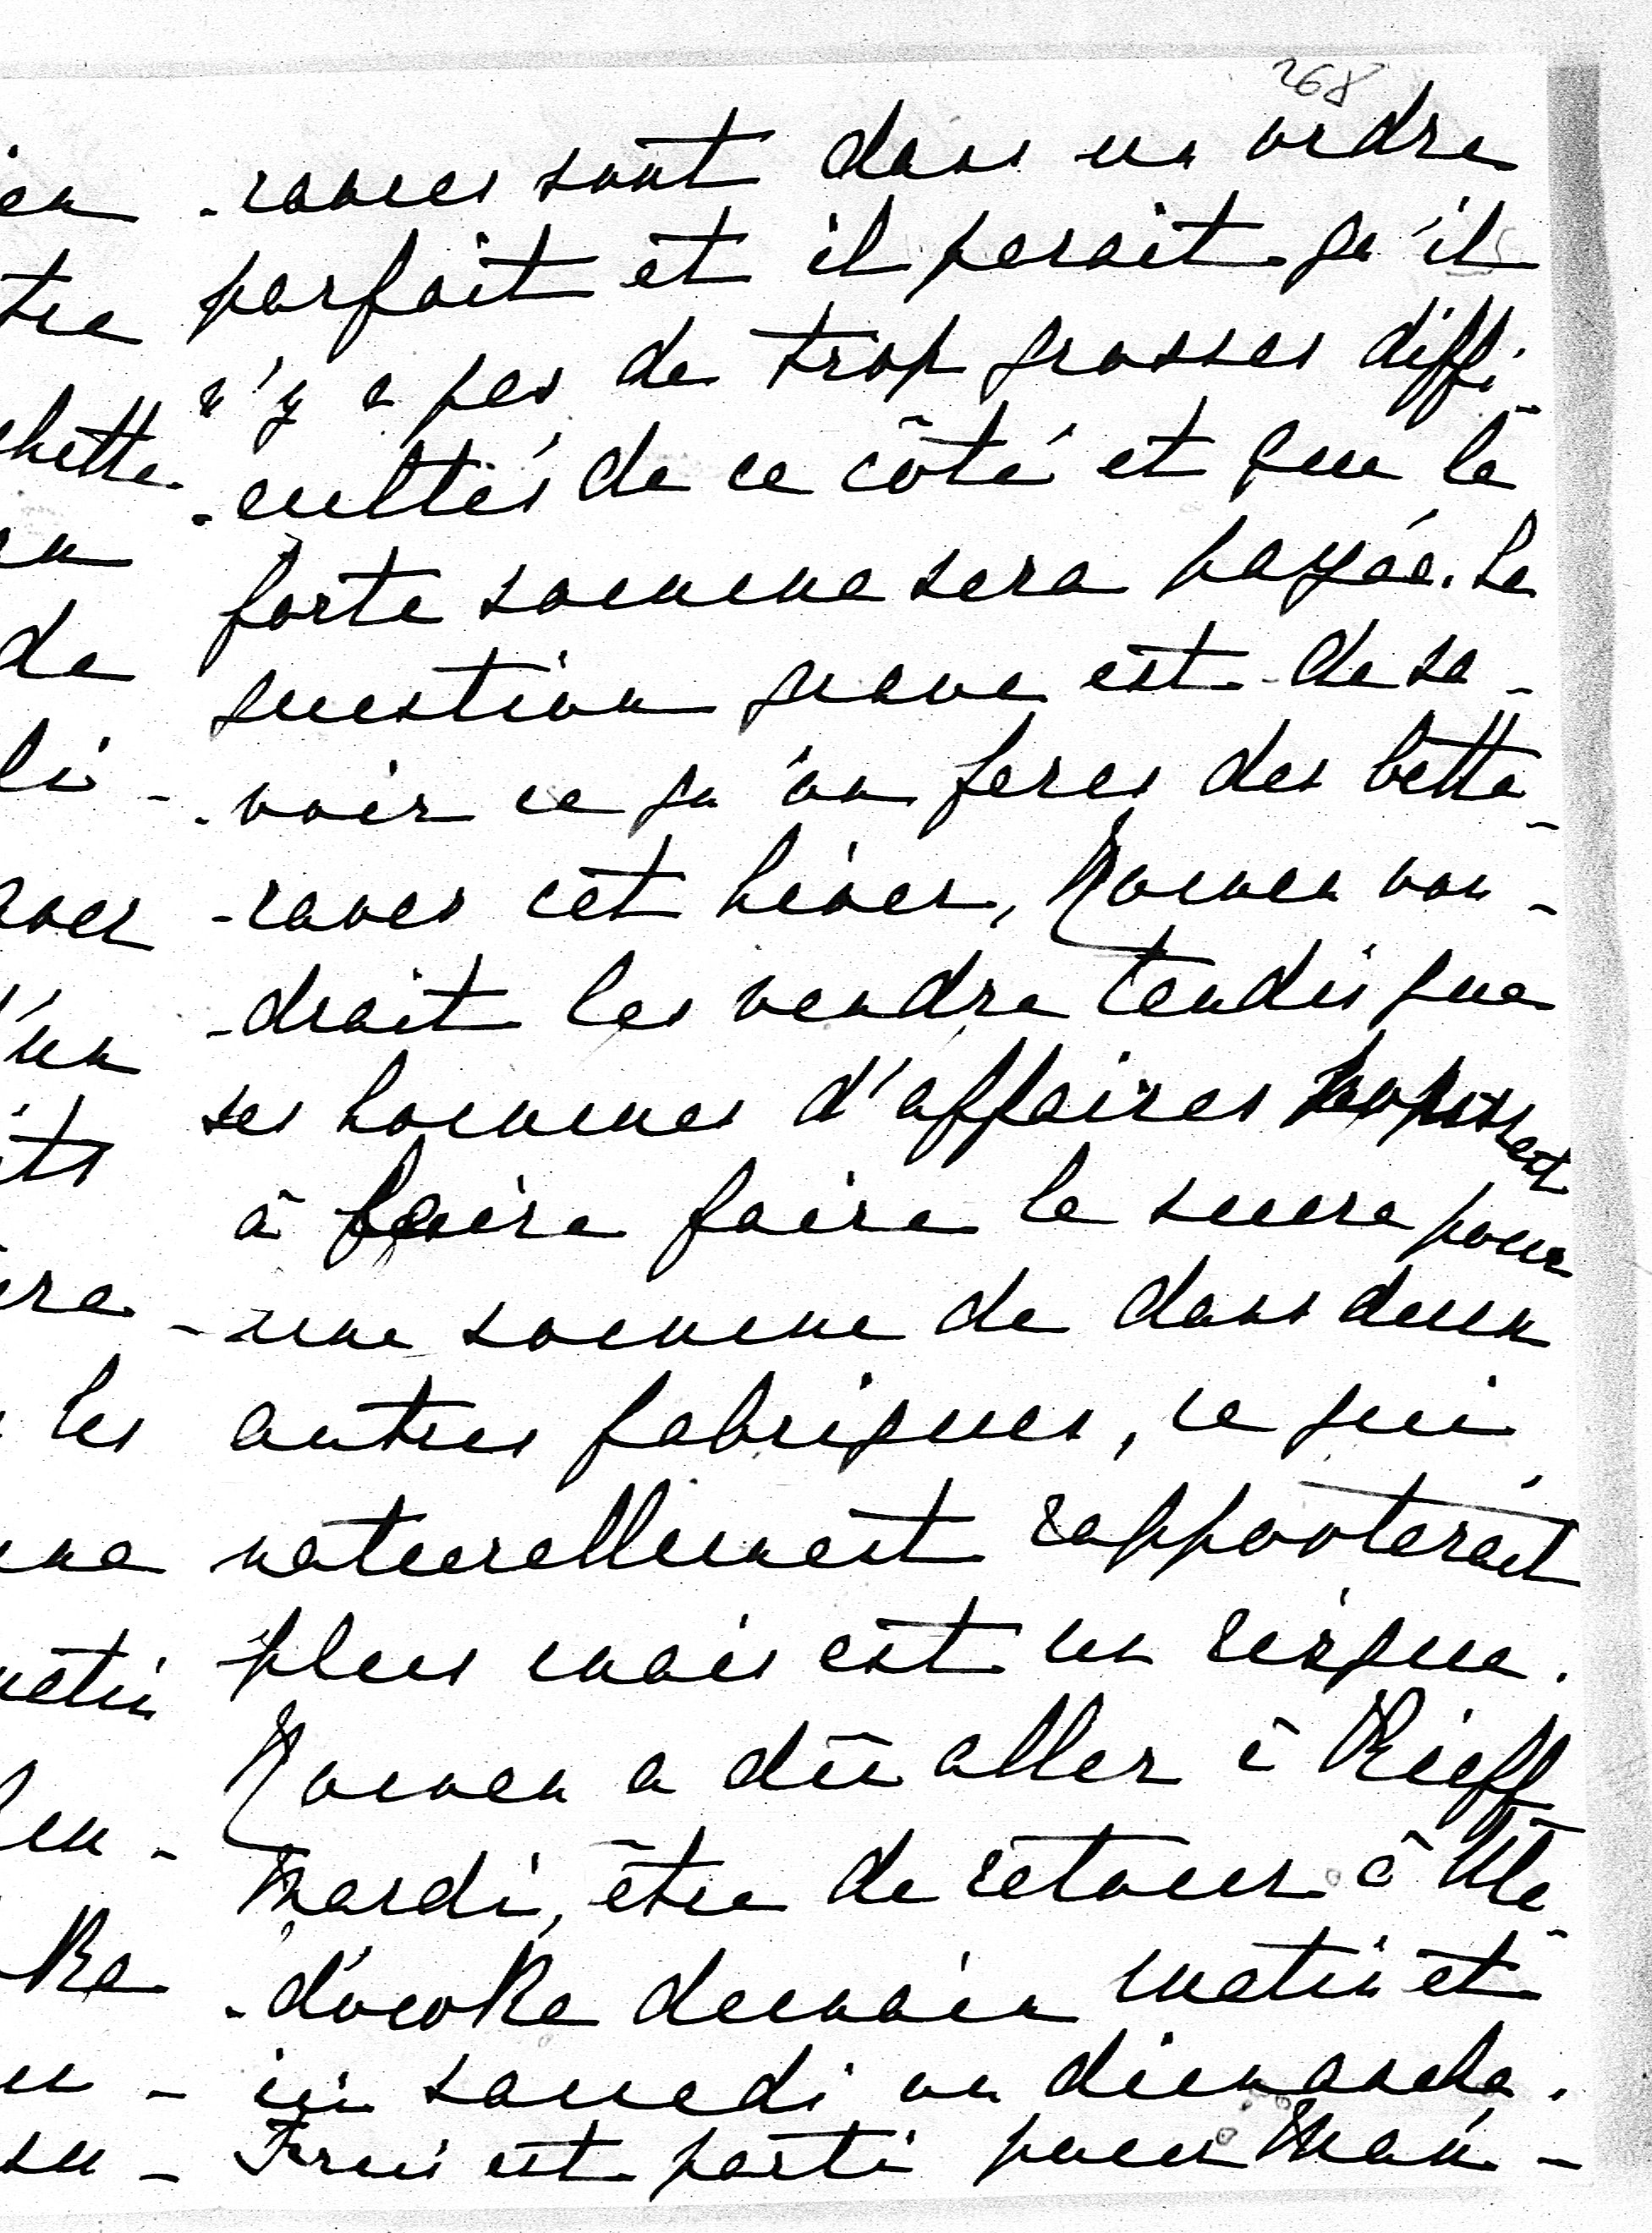 268
-rances sont dans un ordre
parfait et il parait qu'il
n'y a pas de trop grosses diffi-
-cultés de ce côté et que la
forte somme sera payée. La
question grave est de sa-
-voir ce qu'on feras des bette-
-raves cet hiver, Roman vou-
-drait les vendre tandis que
ses hommes d'affaires
à faire faire le sucre pour
une somme de dans deux
autres fabriques, ce qui
naturellement rapporterait
plus mais est un risque.
Roman a dû aller à Kieff
Mardi, être de retour à
demain matin et
ici samedi ou dimanche.
est parti pour